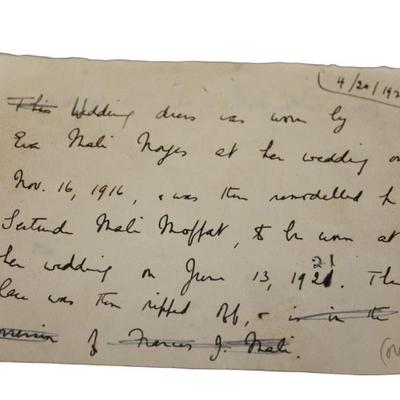 4/20/192
This Wedding dress was worn by
Eva Mali Noyes at her wedding on
Nov. 16, 1916, & was then remodelled
Gertrude Mali Moffat, to be worn at
her wedding on June 13, 1921. The
lace was then ripped off, & is in the
of Frances J. Mali.